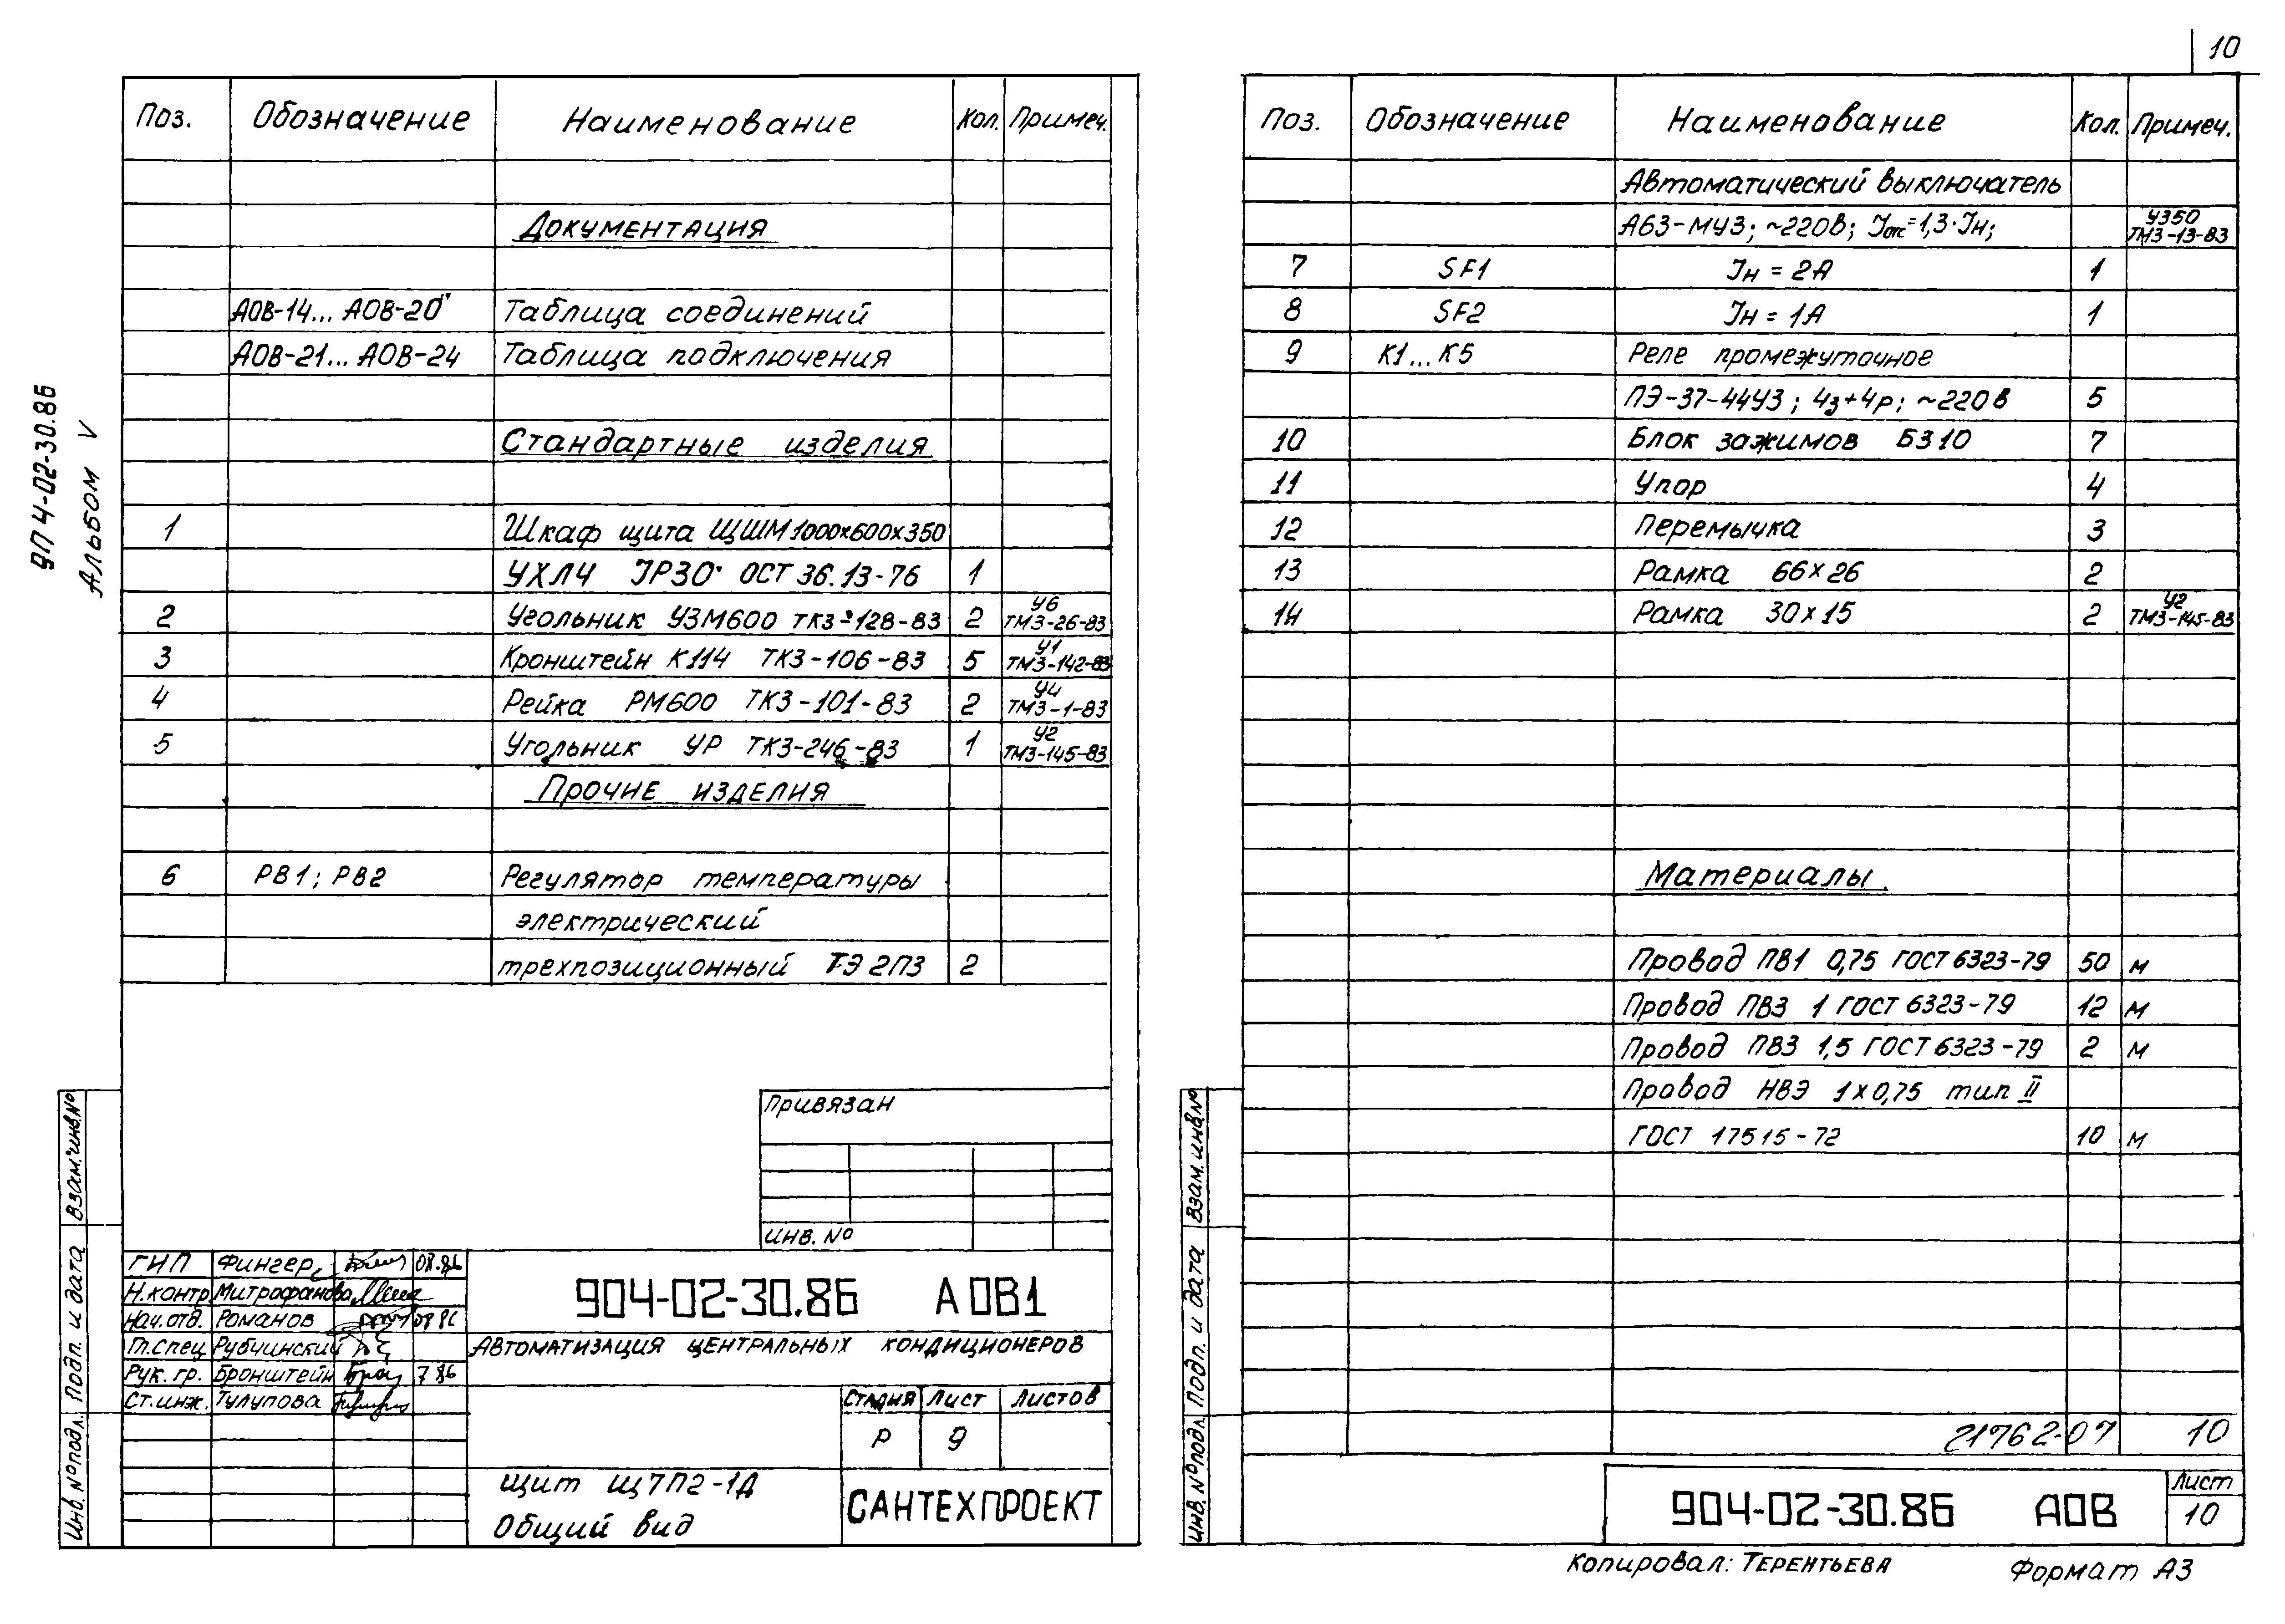 10
9П4-02-30.86
Альбом V
Поз. Обозначение Наименование Кол. Примеч.
Документация
АОВ-14... АОВ-20 Таблица соединений
АОВ-21... АОВ-24 Таблица подключения
Стандартные изделия
1 Шкаф щита ЩШМ 1000х600х350
УХЛ4 IP30 ОСТ 36.13-76 1
2 Угольник УЗМ600 ТКЗ-128-83 2 У6 ТМЗ-26-83
3 Кронштейн К114 ТКЗ-106-83 5 У1 ТМЗ-142-83
4 Рейка РМ600 ТКЗ-101-83 2 У4 ТМЗ-1-83
5 Угольник УР ТКЗ-246-83 1 У2 ТМЗ-145-83
Прочие изделия
6 РВ1; РВ2 Регулятор температуры
электрический
трехпозиционный ТЭ 2П3 2
Привязан
Инв. №
ГИП Фингер 08.86
Н.контр Митрофанова
Нач.отд. Романов 08 86
Гл.спец Рубчинский
Рук. гр. Бронштейн 7 86
Ст.инж. Тулупова
904-02-30.86 АОВ1
Автоматизация центральных кондиционеров
Стадия Лист Листов
Р 9
Щит Щ7П2-1Д
Общий вид
САНТЕХПРОЕКТ
Инв. № подл. Подп. и дата Взам. инв. №
Поз. Обозначение Наименование Кол. Примеч.
Автоматический выключатель
А63-МУ3; ~220В; Iотс=1,3·Iн; У350 ТМЗ-13-83
7 SF1 Iн = 2А 1
8 SF2 Iн = 1А 1
9 К1... К5 Реле промежуточное
ПЭ-37-44У3; 4з+4р; ~220В 5
10 Блок зажимов БЗ10 7
11 Упор 4
12 Перемычка 3
13 Рамка 66х26 2
14 Рамка 30х15 2 У2 ТМЗ-145-83
Материалы
Провод ПВ1 0,75 ГОСТ 6323-79 50 м
Провод ПВ3 1 ГОСТ 6323-79 12 м
Провод ПВ3 1,5 ГОСТ 6323-79 2 м
Провод НВЭ 1х0,75 тип II
ГОСТ 17515-72 10 м
21762-07 10
904-02-30.86 АОВ
Лист
10
Инв. № подл. Подп. и дата Взам. инв. №
Копировал: Терентьева Формат А3